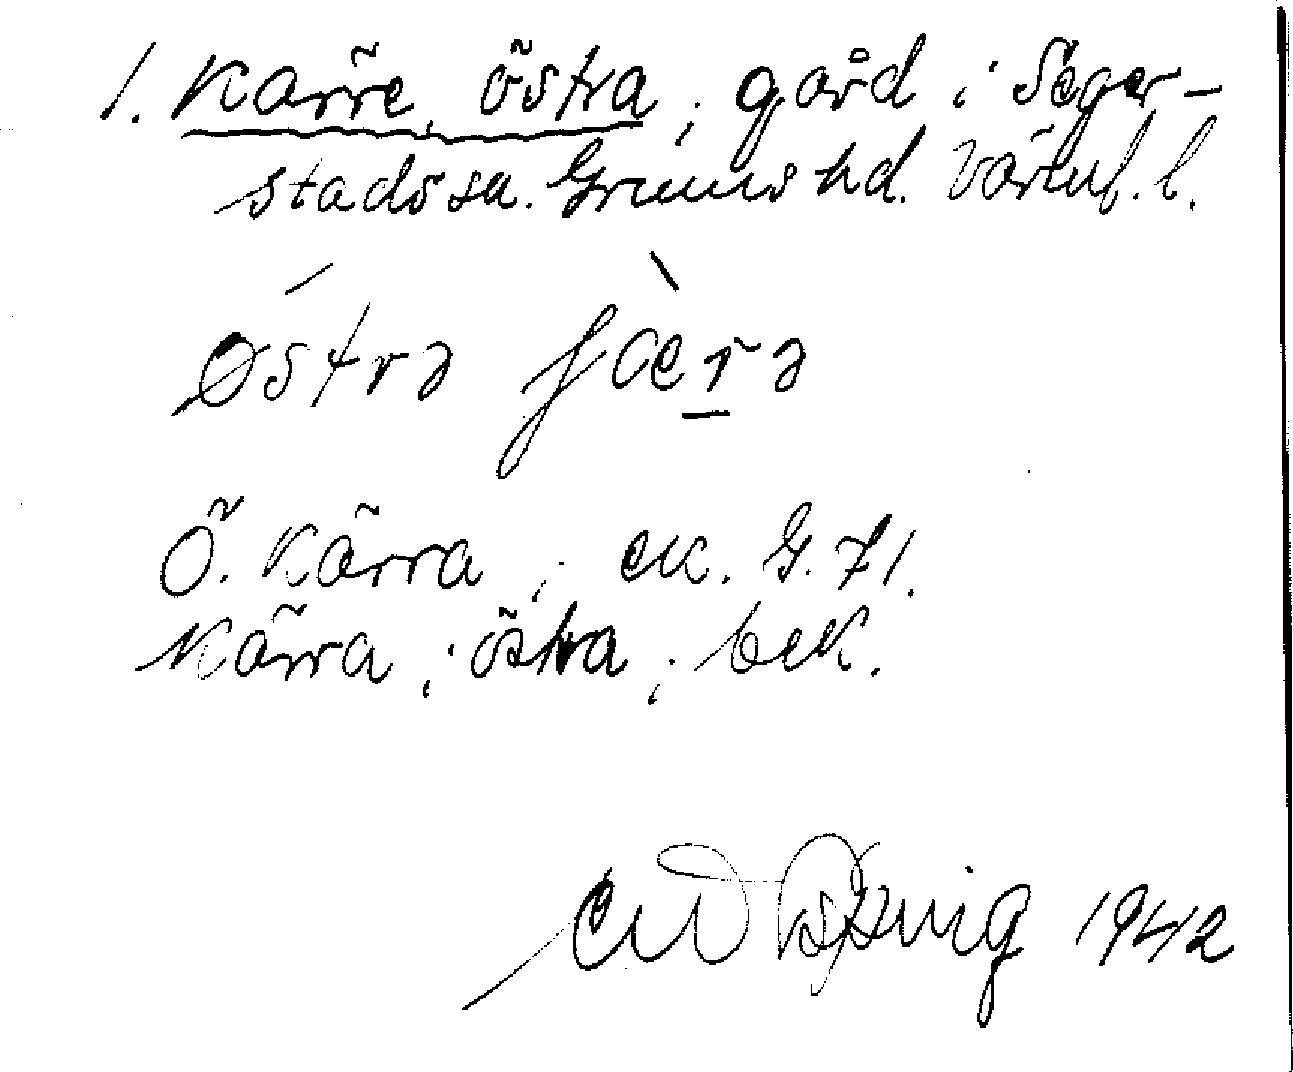 1. Kärre, östra; gård i Seger-
stads sn. Grums hd. Värml. l.
östrə ʃærə
Ö. Kärra; ek. G. 71.
Kärra, östra; bek.
1942